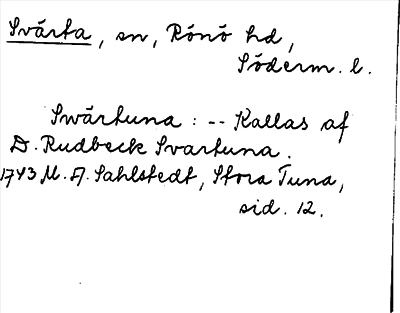 Svärta, sn, Rönö hd,
Söderm. l.
Swärtuna : -- Kallas af
D. Rudbeck Svartuna.
1743 M. A. Sahlstedt, Stora Tuna,
sid. 12.